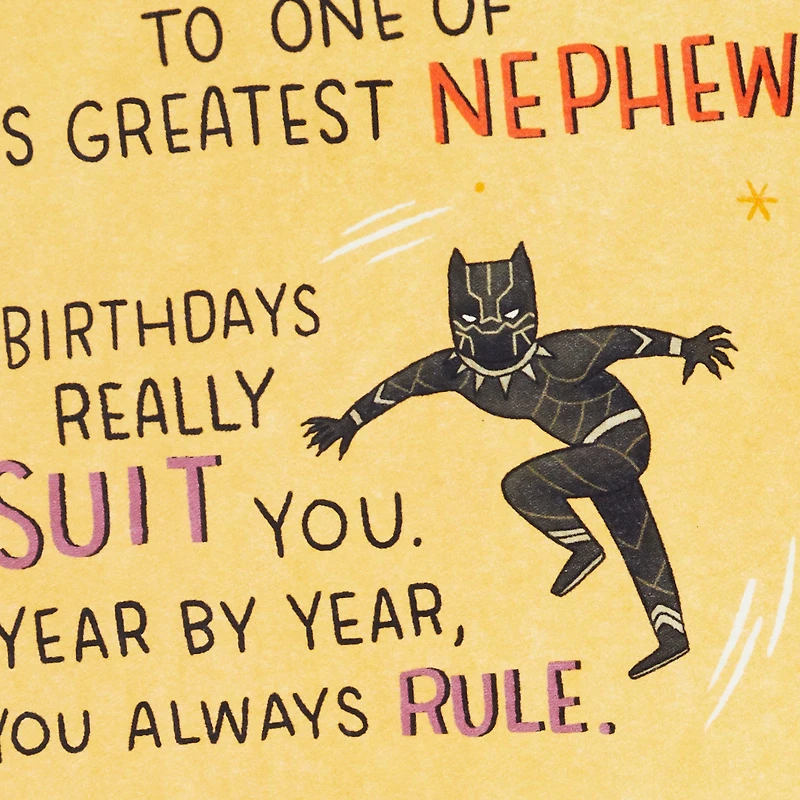 TO ONE OF
S GREATEST NEPHEW
BIRTHDAYS
REALLY
SUIT YOU.
YEAR BY YEAR,
YOU ALWAYS RULE.